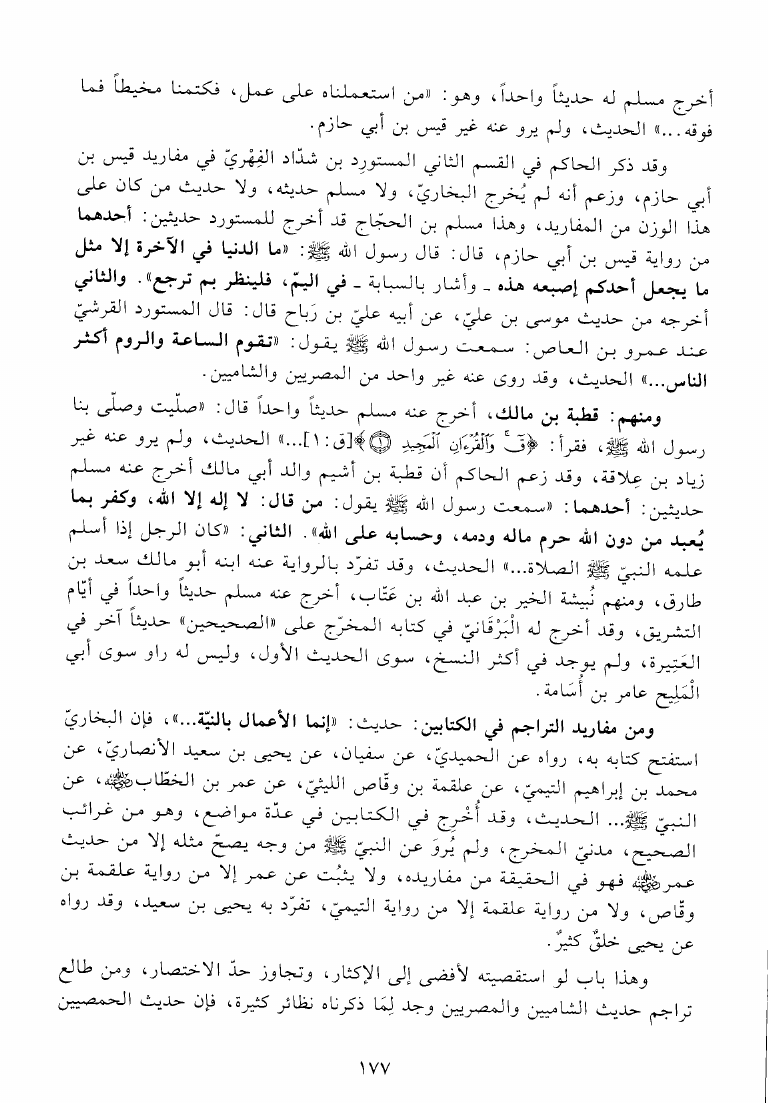 أخرج مسلم له حديثاً واحداً، وهو: «من استعملناه على عمل، فكتمنا مخيطاً فما
فوقه...» الحديث، ولم يرو عنه غير قيس بن أبي حازم.
وقد ذكر الحاكم في القسم الثاني المستورِد بن شدّاد الفِهْريّ في مفاريد قيس بن
أبي حازم، وزعم أنه لم يُخرج البخاريّ، ولا مسلم حديثه، ولا حديث من كان على
هذا الوزن من المفاريد، وهذا مسلم بن الحجّاج قد أخرج للمستورد حديثين: أحدهما
من رواية قيس بن أبي حازم، قال: قال رسول الله ﷺ: «ما الدنيا في الآخرة إلا مثل
ما يجعل أحدكم إصبعه هذه ـ وأشار بالسبابة ـ في اليمّ، فلينظر بم ترجع». والثاني
أخرجه من حديث موسى بن عليّ، عن أبيه عليّ بن رَباح قال: قال المستورد القرشيّ
عند عمرو بن العاص: سمعت رسول الله ﷺ يقول: «تقوم الساعة والروم أكثر
الناس...» الحديث، وقد روى عنه غير واحد من المصريين والشاميين.
ومنهم: قطبة بن مالك، أخرج عنه مسلم حديثاً واحداً قال: «صلّيت وصلّى بنا
رسول الله ﷺ، فقرأ: ﴿قٓۚ وَٱلۡقُرۡءَانِ ٱلۡمَجِيدِ ۝١﴾ [ق: ١]...» الحديث، ولم يرو عنه غير
زياد بن عِلاقة، وقد زعم الحاكم أن قطبة بن أشيم والد أبي مالك أخرج عنه مسلم
حديثين: أحدهما: «سمعت رسول الله ﷺ يقول: من قال: لا إله إلا الله، وكفر بما
يُعبد من دون الله حرم ماله ودمه، وحسابه على الله». الثاني: «كان الرجل إذا أسلم
علمه النبيّ ﷺ الصلاة...» الحديث، وقد تفرّد بالرواية عنه ابنه أبو مالك سعد بن
طارق، ومنهم نُبيشة الخير بن عبد الله بن عَتّاب، أخرج عنه مسلم حديثاً واحداً في أيّام
التشريق، وقد أخرج له الْبَرْقانيّ في كتابه المخرّج على «الصحيحين» حديثاً آخر في
العَتِيرة، ولم يوجد في أكثر النسخ، سوى الحديث الأول، وليس له راو سوى أبي
الْمَلِيح عامر بن أُسَامة.
ومن مفاريد التراجم في الكتابين: حديث: «إنما الأعمال بالنيّة...»، فإن البخاريّ
استفتح كتابه به، رواه عن الحميديّ، عن سفيان، عن يحيى بن سعيد الأنصاريّ، عن
محمد بن إبراهيم التيميّ، عن علقمة بن وقّاص الليثيّ، عن عمر بن الخطّاب رضي الله عنه، عن
النبيّ ﷺ... الحديث، وقد أُخْرِج في الكتابين في عدّة مواضع، وهو من غرائب
الصحيح، مدنيّ المخرج، ولم يُروَ عن النبيّ ﷺ من وجه يصحّ مثله إلا من حديث
عمر رضي الله عنه فهو في الحقيقة من مفاريده، ولا يثبُت عن عمر إلا من رواية علقمة بن
وقّاص، ولا من رواية علقمة إلا من رواية التيميّ، تفرّد به يحيى بن سعيد، وقد رواه
عن يحيى خلقٌ كثيرٌ.
وهذا باب لو استقصيته لأفضى إلى الإكثار، وتجاوز حدّ الاختصار، ومن طالع
تراجم حديث الشاميين والمصريين وجد لِمَا ذكرناه نظائر كثيرة، فإن حديث الحمصيين
١٧٧